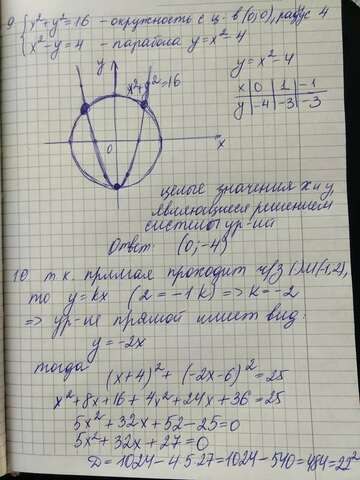 9. { x²+y²=16 - окружность с ц. в (0,0), радиус 4
{ x²-y=4 - парабола y=x²-4
y
x²+y²=16
0
x
y=x²-4
x | 0 | 1 | -1
y | -4 | -3 | -3
целые значения x и y
являющиеся решением
системы ур-ий
Ответ: (0;-4)
10. т.к. прямая проходит чрз M(-1,2),
то y=kx (2=-1k) => k=-2
=> ур-ие прямой имеет вид:
y=-2x
тогда
(x+4)²+(-2x-6)²=25
x²+8x+16+4x²+24x+36=25
5x²+32x+52-25=0
5x²+32x+27=0
D=1024-4·5·27=1024-540=484=22²